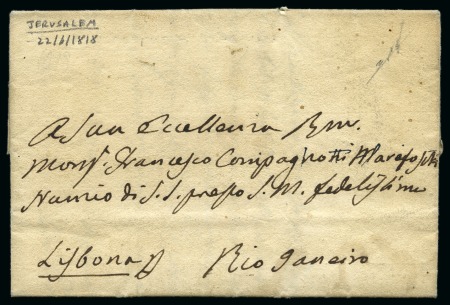 JERUSALEM
22/6/1818
A Sua Eccellenza Rma.
Monsr. Francesco Compagnotti Marefoschi
Nunzio di S. S. presso S. M. fedelissima
Lisbona Rio Janeiro